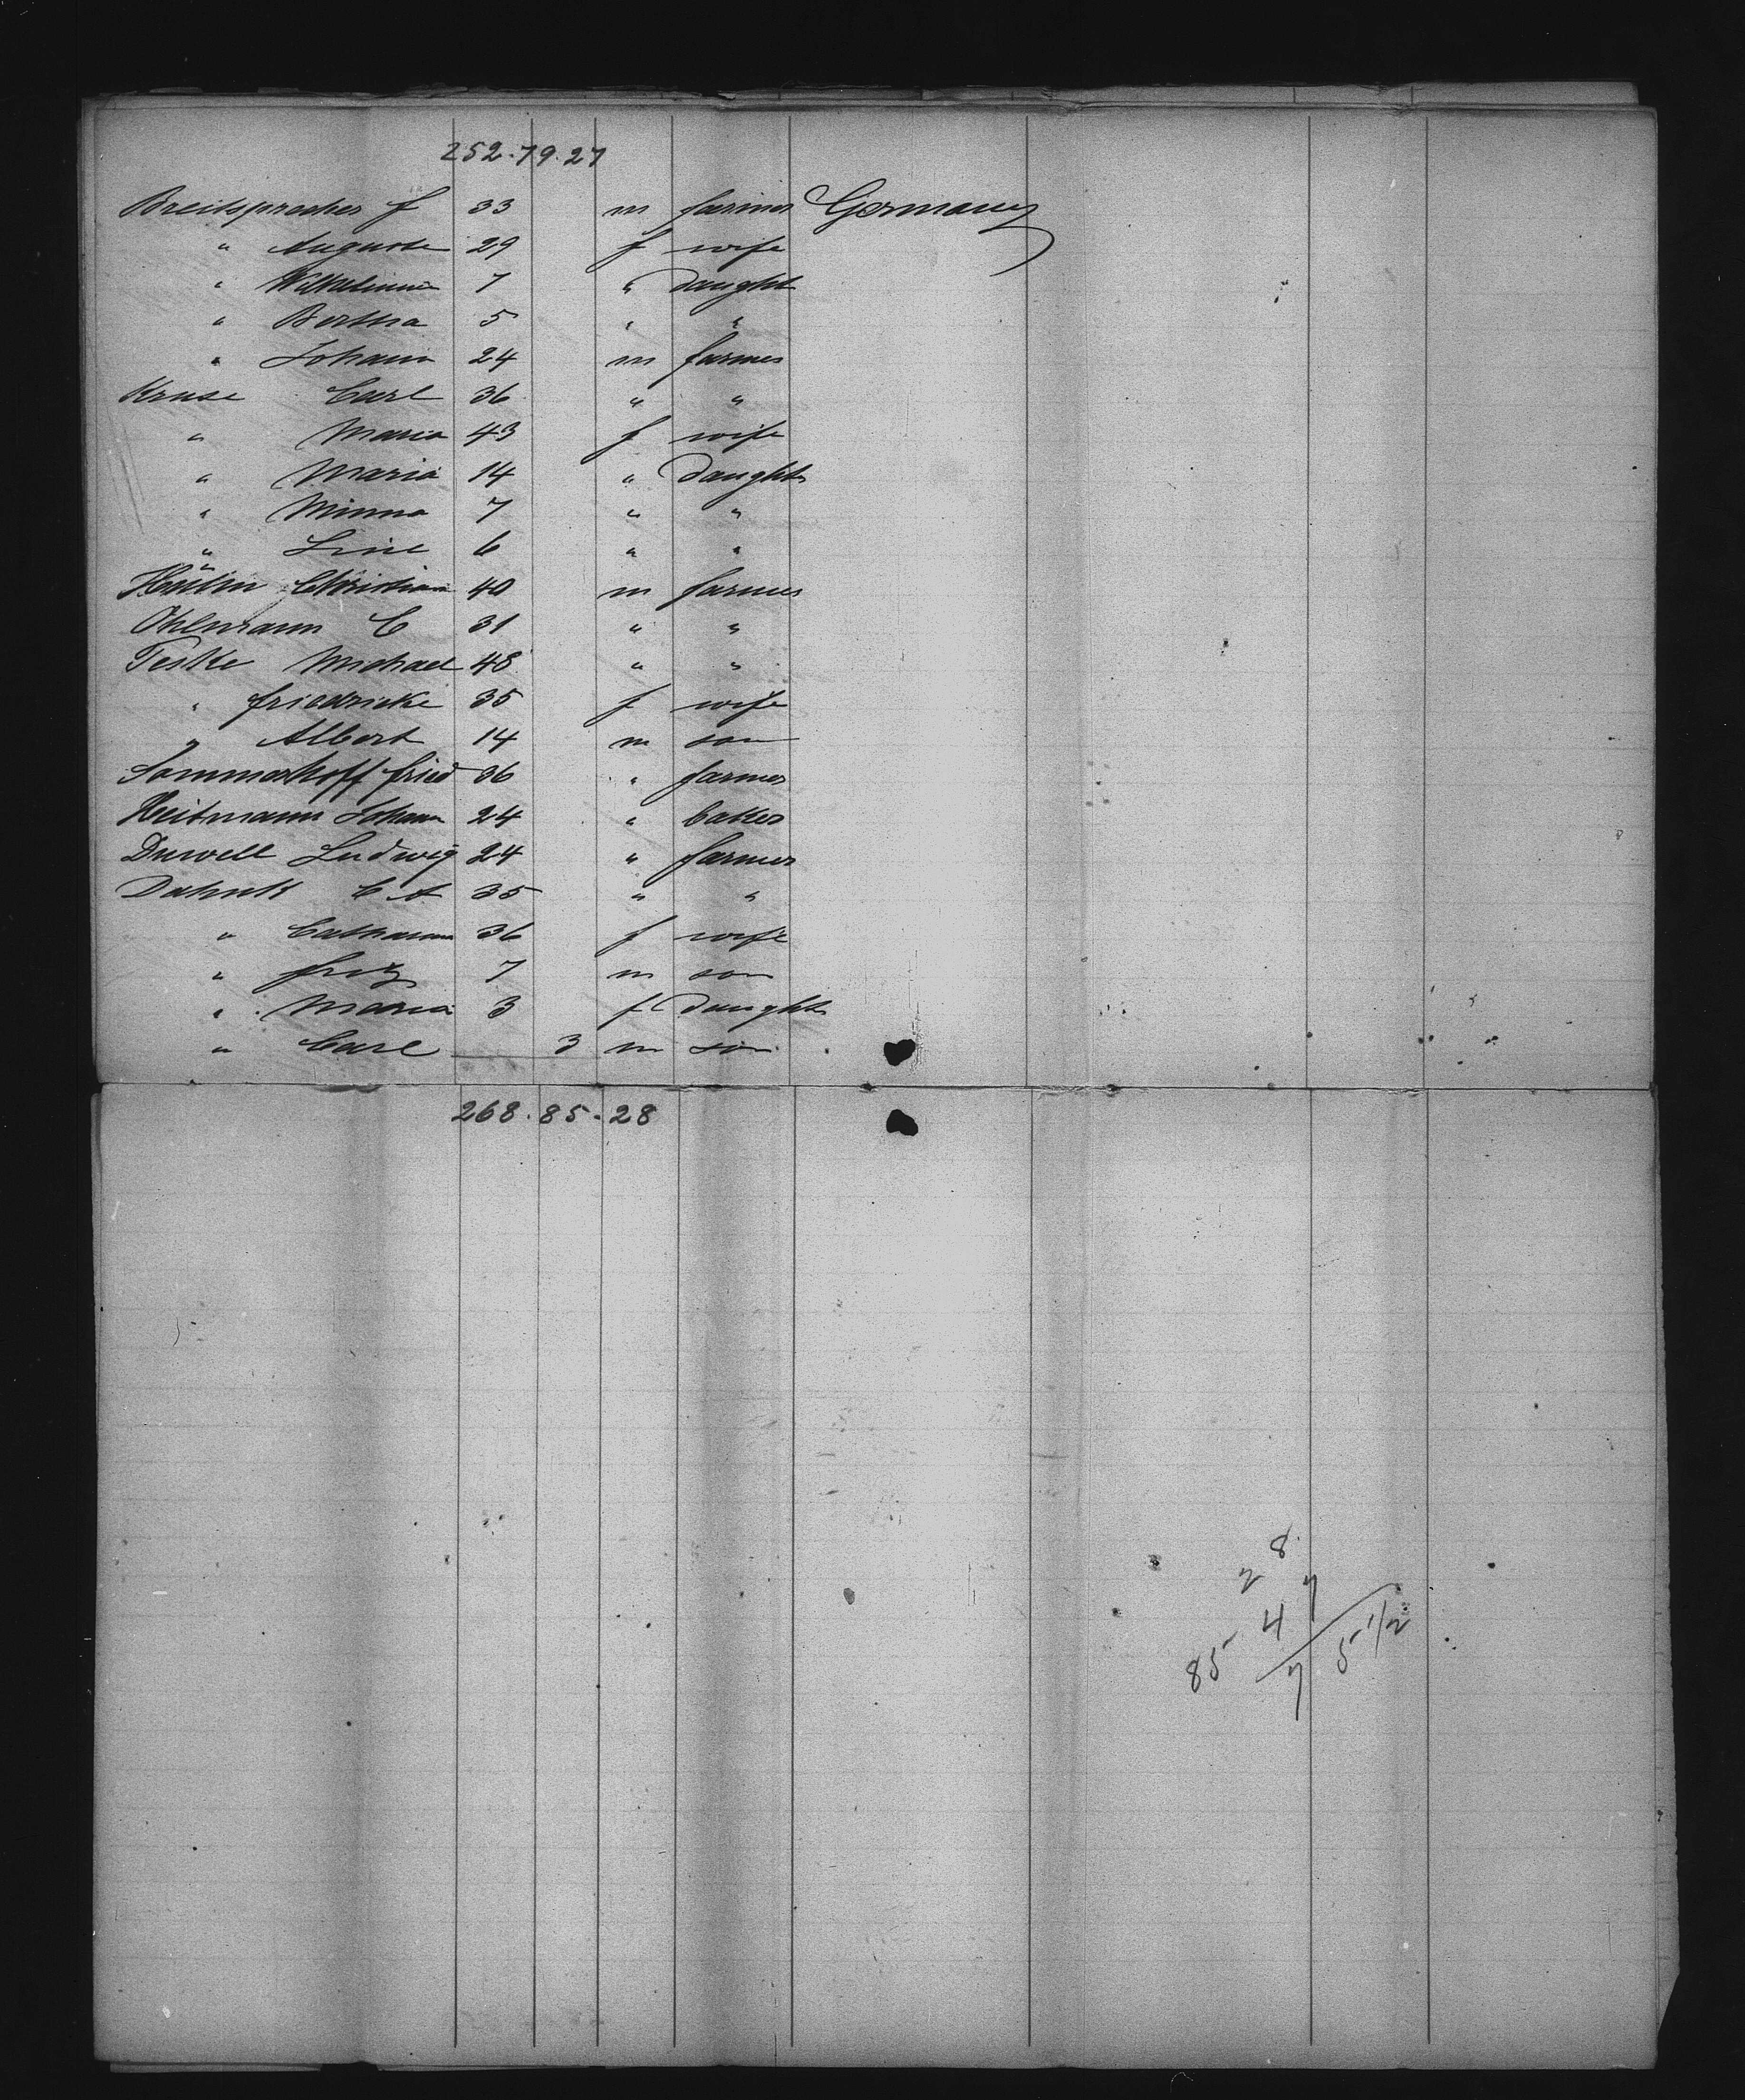 252.79.27
Breitsprecher f 33 m farmer Germany
" Auguste 29 f wife
" Wilhelmine 7 " daught
" Bertha 5 " "
" Johann 24 m farmer
Kruse Carl 36 " "
" Maria 43 f wife
" Maria 14 " daughtr
" Minna 7 " "
" Line 6 " "
Christian 40 m farmer
Ohlmann C 31 " "
Teske Michael 48 " "
" friedricke 35 f wife
" Albert 14 m son
Sommerhoff fried 36 " farmer
Heitmann Johann 24 " baker
Duwell Ludwig 24 " farmer
C 35 " "
" Catharina 36 f wife
" fritz 7 m son
" Maria 3 f daughtr
" Carl 3 m son
268.85-28
8
2 7
4
85 7 5 1/2